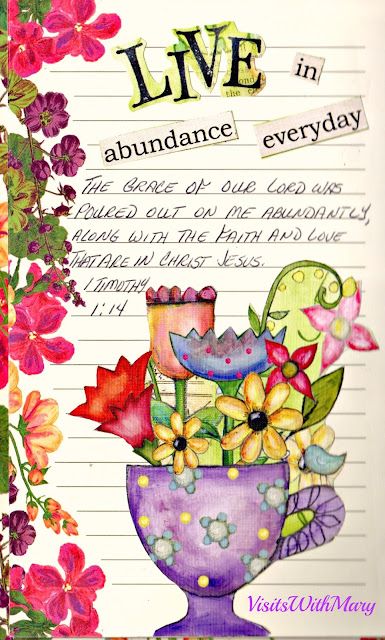 LIVE in
abundance everyday
THE GRACE OF OUR LORD WAS
POURED OUT ON ME ABUNDANTLY,
ALONG WITH THE FAITH AND LOVE
THAT ARE IN CHRIST JESUS.
1 TIMOTHY
1:14
VisitsWithMary